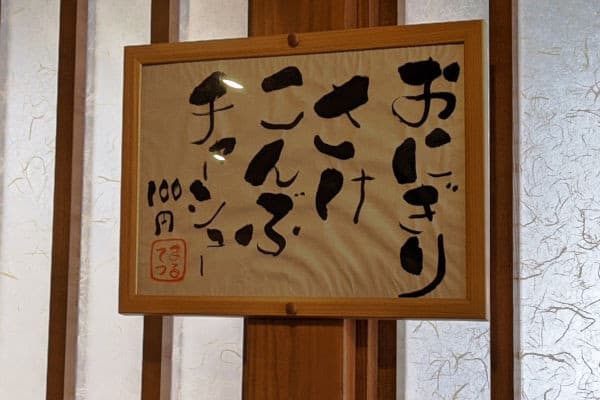 おにぎり
さけ
こんぶ
チャーシュー
100円
まるてつ